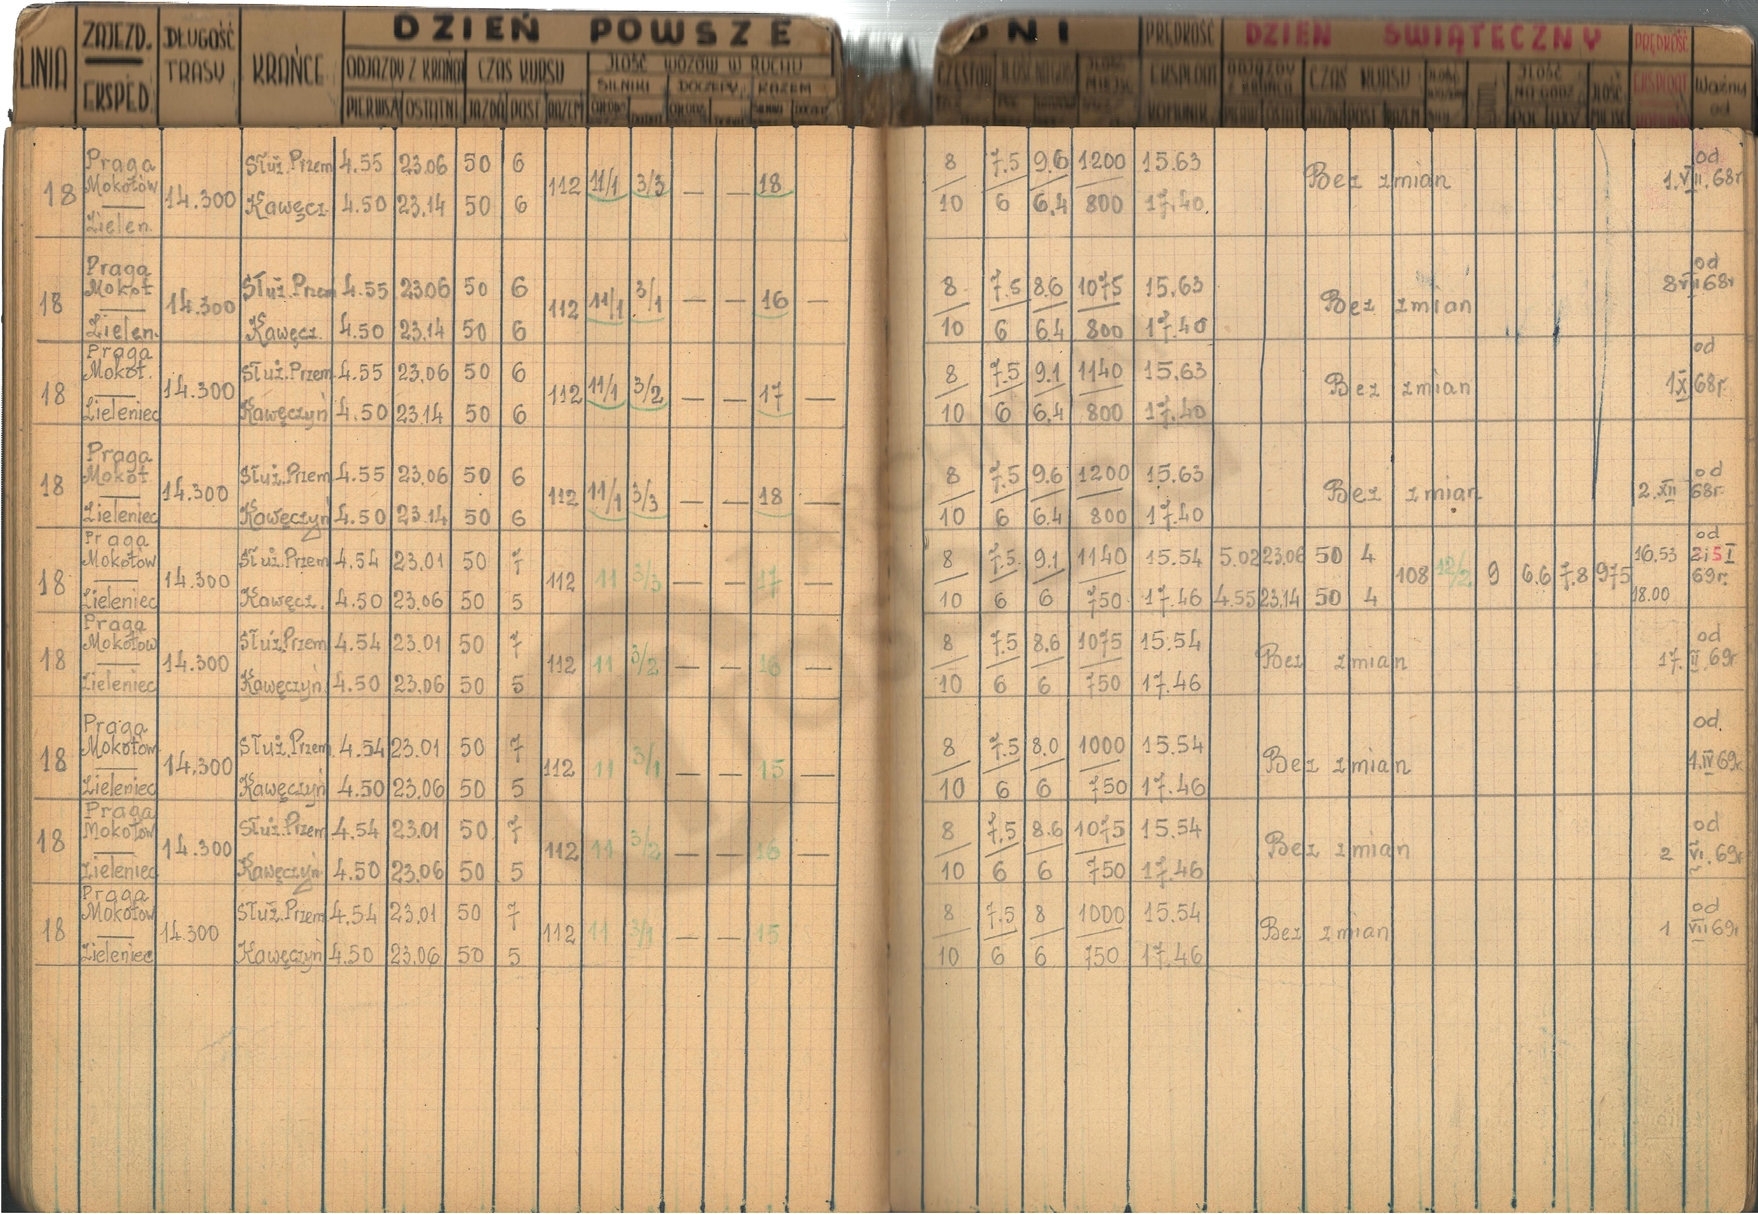 LINIA ZAJEZD. EKSPED. DŁUGOŚĆ TRASY KRAŃCE DZIEŃ POWSZE
ODJAZDY Z KRAŃCA CZAS KURSU ILOŚĆ WOZÓW W RUCHU
SILNIKI DOCZEPY RAZEM
PIERWSZY OSTATNI JAZDA POST. RAZEM
DNI PRĘDKOŚĆ DZIEŃ ŚWIĄTECZNY PRĘDKOŚĆ
EKSPLOAT CZAS KURSU ILOŚĆ NA GODZ. EKSPLOAT Ważny od
18 Praga Mokotów Zielen. 14.300 Służ.Przem 4.55 23.06 50 6 112 11/1 3/3 — — 18
Kawęcz. 4.50 23.14 50 6
8 7.5 9.6 1200 15.63 Bez zmian od 1.VII.68r
10 6 6.4 800 17.40
18 Praga Mokot Zielen. 14.300 Służ.Przem 4.55 23.06 50 6 112 11/1 3/1 — — 16 —
Kawęcz. 4.50 23.14 50 6
8 7.5 8.6 1075 15.63 Bez zmian od
10 6 6.4 800 17.40
18 Praga Mokot. Zieleniec 14.300 Służ.Przem 4.55 23.06 50 6 112 11/1 3/2 — — 17 —
Kawęczyń 4.50 23.14 50 6
8 7.5 9.1 1140 15.63 Bez zmian od 1 X 68r.
10 6 6.4 800 17.40
18 Praga Mokot Zieleniec 14.300 Służ.Przem 4.55 23.06 50 6 112 11/1 3/3 — — 18 —
Kawęczyń 4.50 23.14 50 6
8 7.5 9.6 1200 15.63 Bez zmian od 2.XII 68r.
10 6 6.4 800 17.40
18 Praga Mokotów Zieleniec 14.300 Służ.Przem 4.54 23.01 50 7 112 11 3/3 — — 17 —
Kawęcz. 4.50 23.06 50 5
8 7.5 9.1 1140 15.54 5.02 23.06 50 4 108 12/2 9 6.6 7.8 975 16.53 od 2i5 I 69r.
10 6 6 750 17.46 4.55 23.14 50 4 18.00
18 Praga Mokotow Zieleniec 14.300 Służ.Przem 4.54 23.01 50 7 112 11 3/2 — — 16 —
Kawęczyń 4.50 23.06 50 5
8 7.5 8.6 1075 15.54 Bez zmian od 17. II.69r.
10 6 6 750 17.46
18 Praga Mokotow Zieleniec 14.300 Służ.Przem 4.54 23.01 50 7 112 11 3/1 — — 15 —
Kawęczyń 4.50 23.06 50 5
8 7.5 8.0 1000 15.54 Bez zmian od. 1.IV 69r.
10 6 6 750 17.46
18 Praga Mokotow Zieleniec 14.300 Służ.Przem 4.54 23.01 50 7 112 11 3/2 — — 16 —
Kawęczyń 4.50 23.06 50 5
8 7.5 8.6 1075 15.54 Bez zmian od 2 VI.69r.
10 6 6 750 17.46
18 Praga Mokotow Zieleniec 14.300 Służ.Przem 4.54 23.01 50 7 112 11 3/1 — — 15
Kawęczyń 4.50 23.06 50 5
8 7.5 8 1000 15.54 Bez zmian od 1 VII 69r
10 6 6 750 17.46